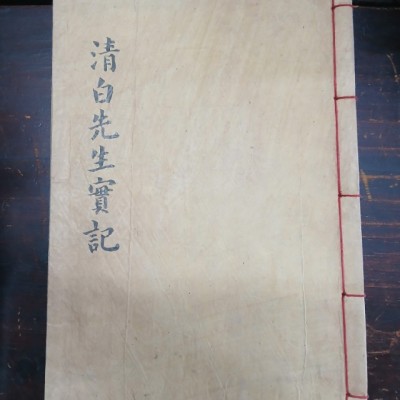 清白先生實記